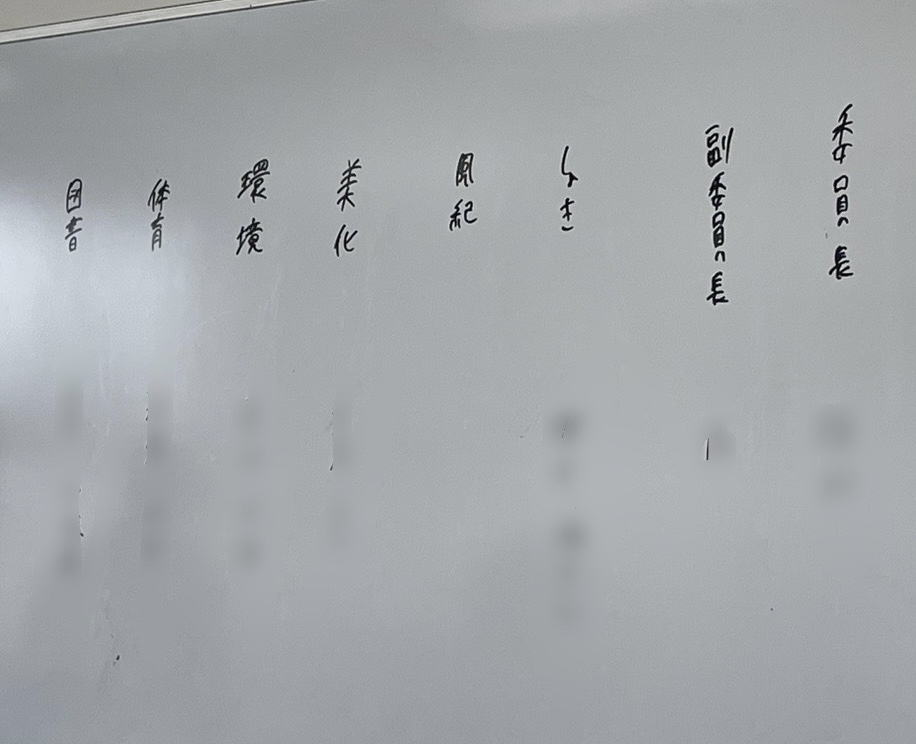 委員長
副委員長
風紀
美化
環境
体育
図書